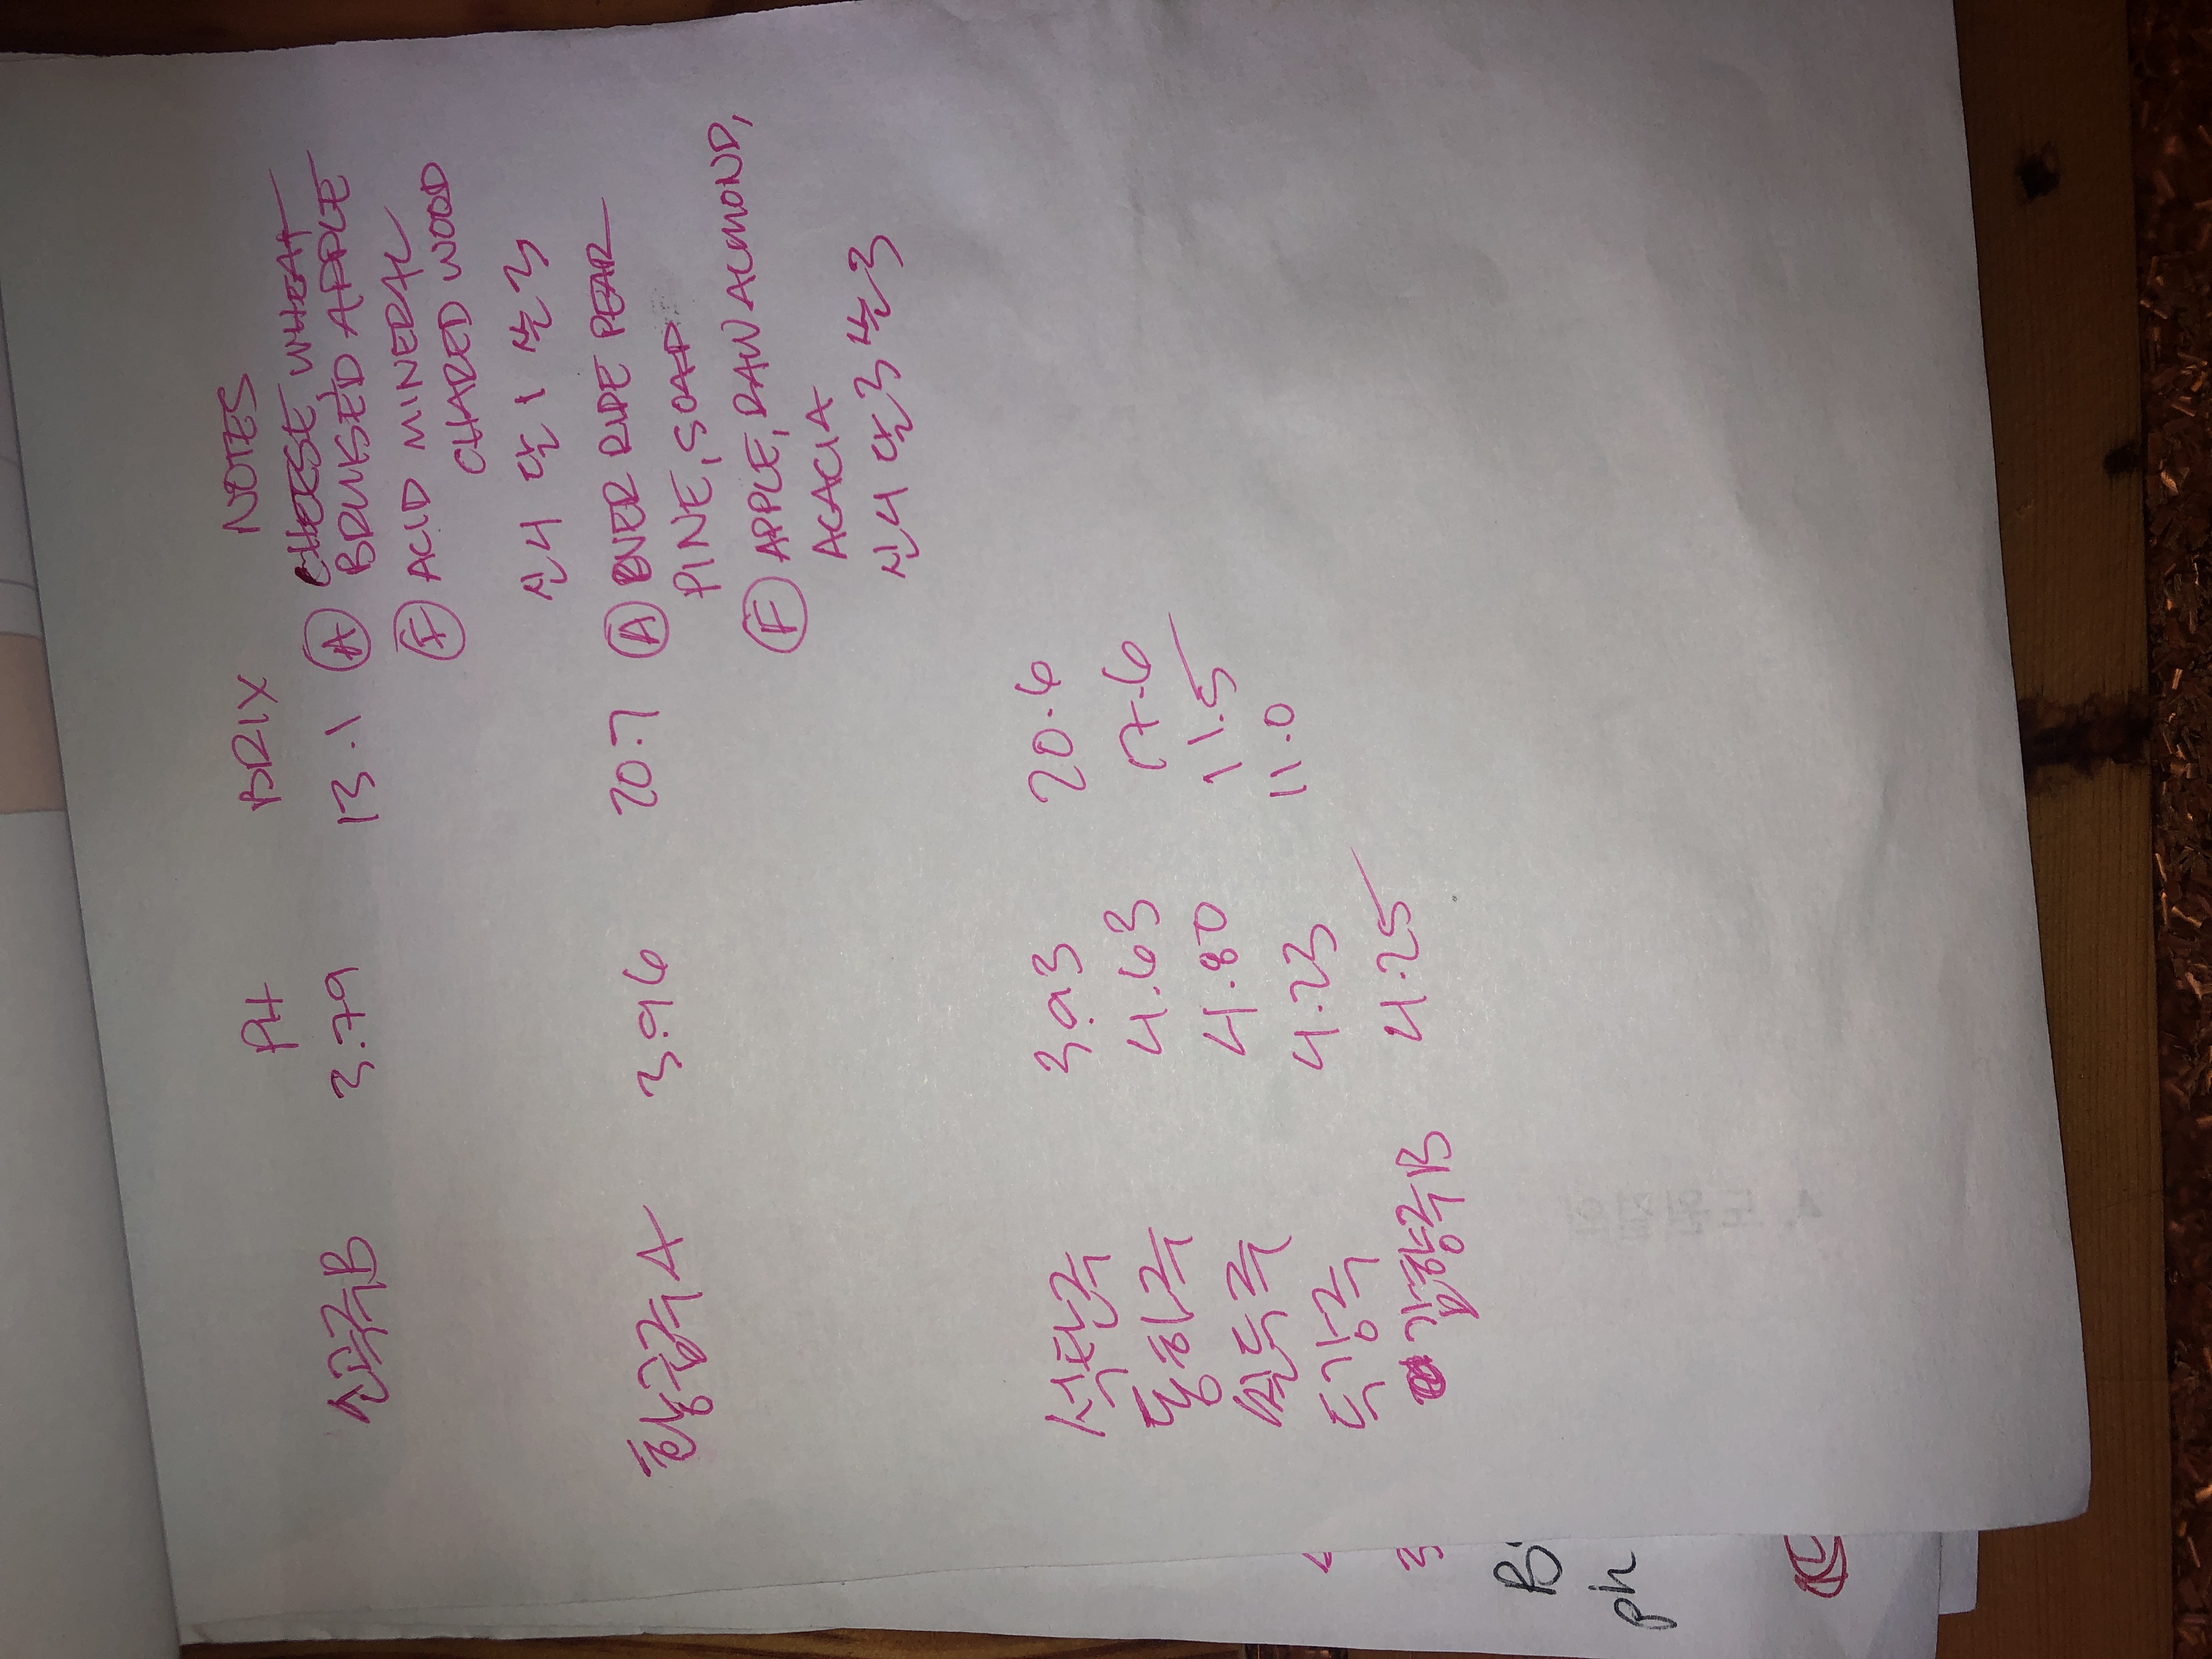 PH BRIX NOTES
신국B 3.79 13.1 Ⓐ CHEESE, WHEAT
BRUISED APPLE
Ⓕ ACID MINERAL
CHARED WOOD
신4 단1 쓴3
황국A 3.96 20.7 Ⓐ OVER RIPE PEAR
PINE, SOAP
Ⓕ APPLE, RAW ALMOND,
ACACIA
신4 단3 쓴3
석탄주 3.93 20.6
동하주 4.63 17.6
4.80 11.5
특강주 4.23 11.0
B 4.25
ph